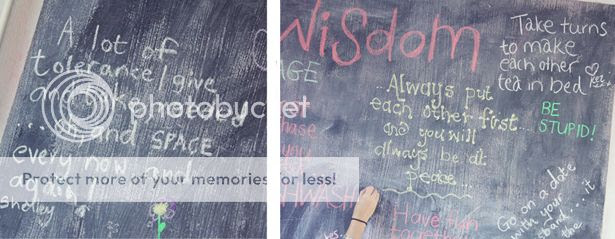 A lot of
tolerance/give
and take needed
... oh and SPACE
every now and
again!
Shelley
photobucket
Protect more of your memories for less!
WISDOM
AGE
Take turns
to make
each other
tea in bed
BE
STUPID!
...Always put
each other first...
and you will
always be at
peace...
Go on a date
with your
the
Have fun
together